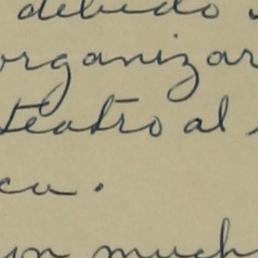 debido
organizar
teatro al
ca.
un much